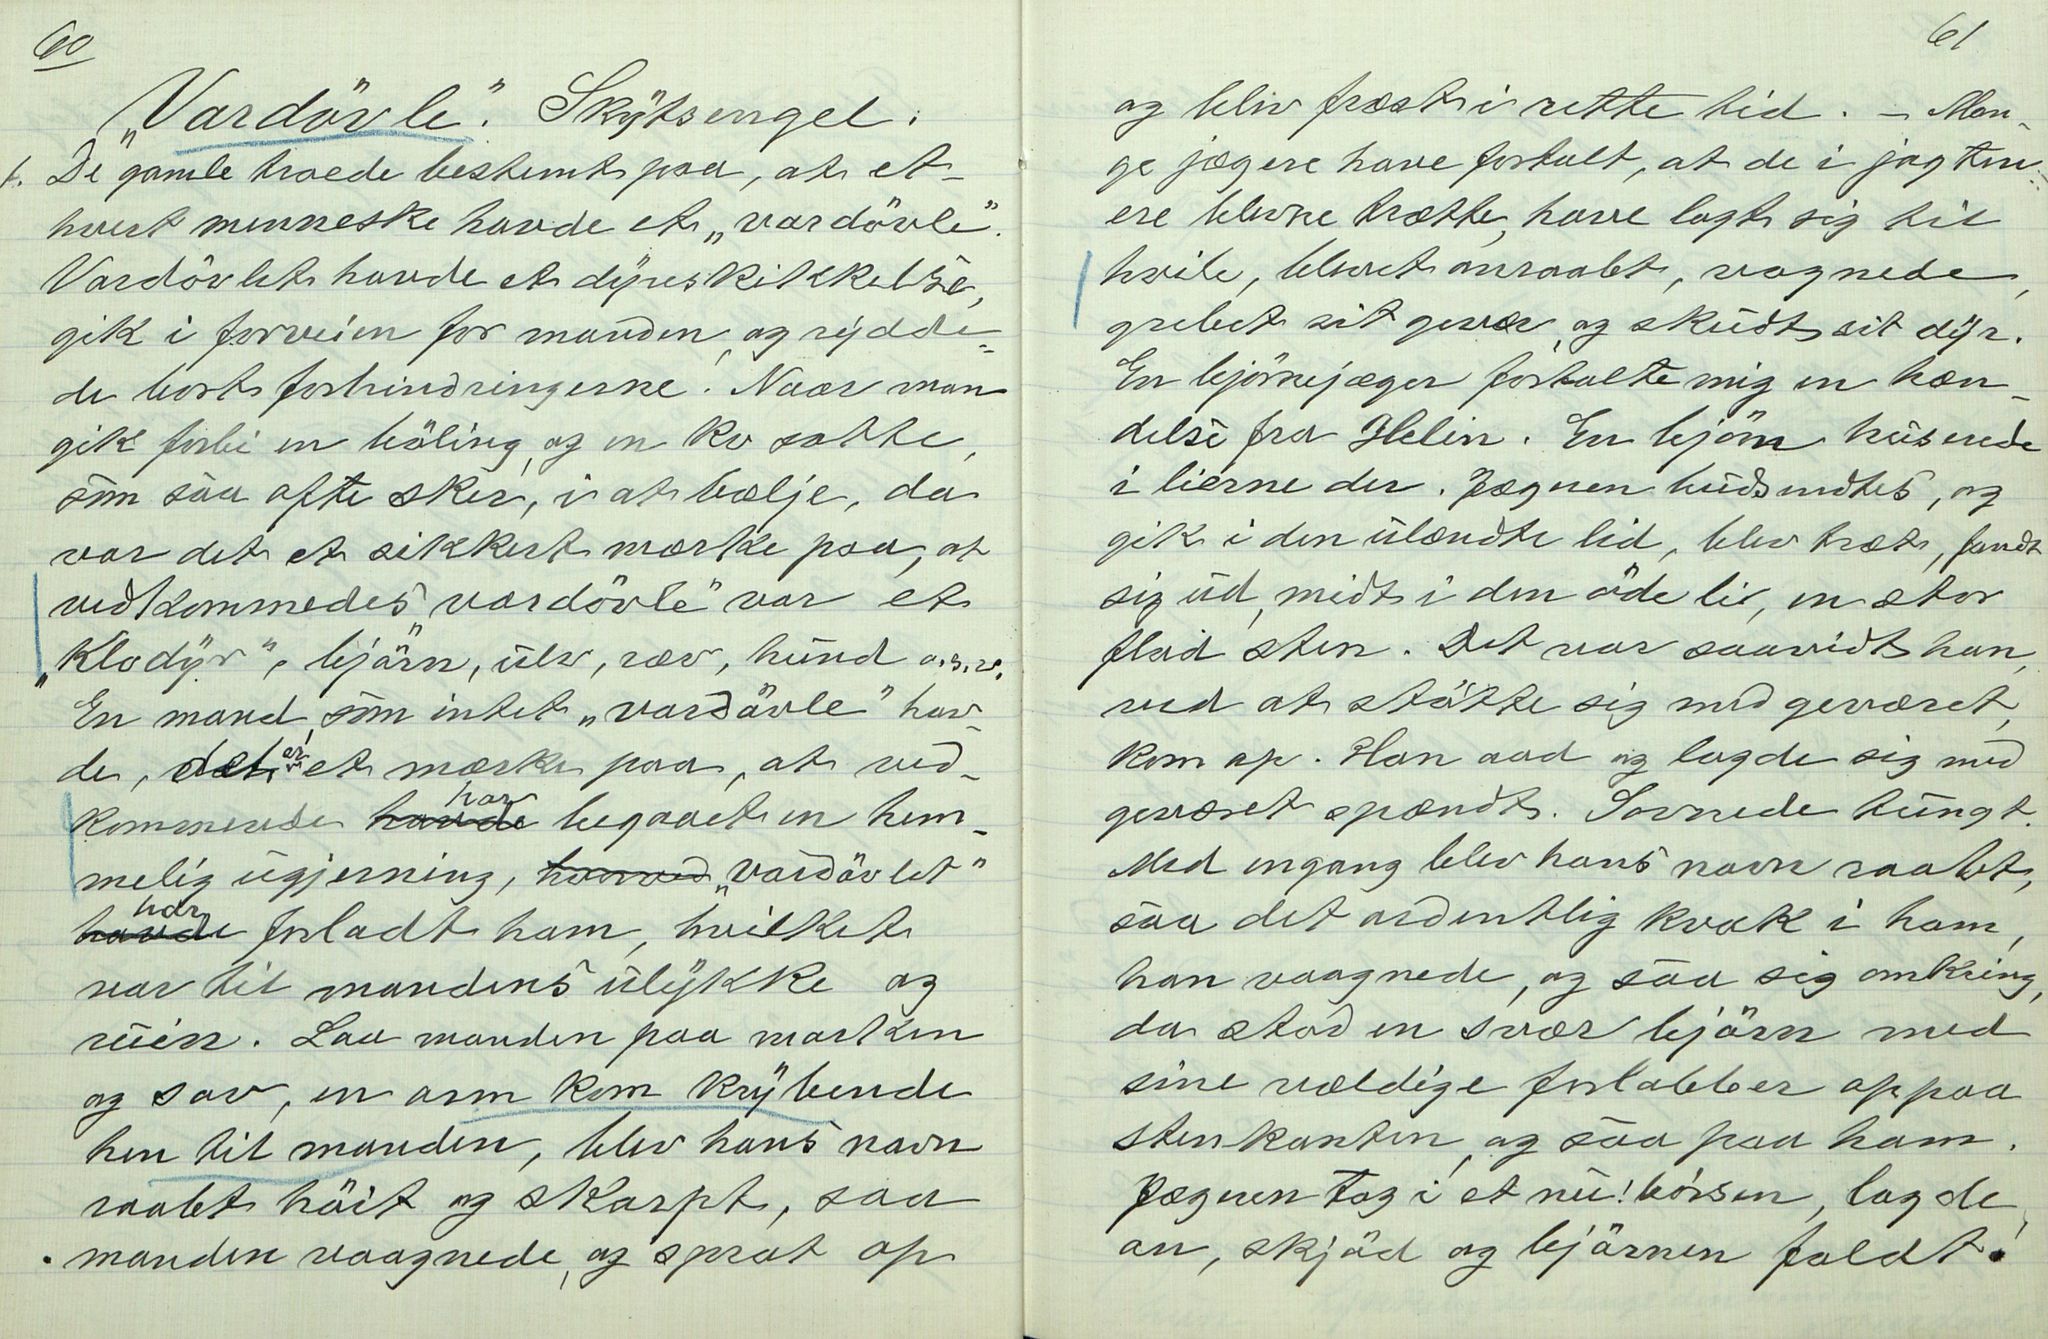 60
"Vardövle". Skytsengel.
1. De gamle troede bestemt paa, at et-
hvert menneske havde et "vardövle".
Vardövlet havde et dyreskikkelse,
gik i forveien for manden, og rydde-
de bort forhindringerne. Naar man
gik forbi en böling, og en ko satte,
som saa ofte sker, i at bælje, da
var det et sikkert mærke paa, at
vedkommedes "vardövle" var et
"Klodyr", bjørn, ulv, ræv, hund o.s.v.
En mand, som intet "vardövle" hav-
de, det er et mærke paa, at ved-
kommende havde har begaaet en hem-
melig ugjerning, hvorved "vardövlet"
havde har forladt ham, hvilket
var til mandens ulykke og
ruin. Laa manden paa marken
og sov, en orm kom krybende
hen til manden, blev hans navn
raabt höit og skarpt, saa
manden vaagnede, og sprat op
61
og blev fræst i rette tid. - Man-
ge jægere have fortalt, at de i jagttu-
ere blevne trætte, have lagt sig til
hvile, blevet anraabt, vagnede,
grebet sit gevær, og skudt sit dyr.
En bjørnejæger fortalte mig en hæn-
delse fra Helin. En bjørn huserede
i lierne der. Jægeren budsendtes, og
gik i den ulændte lid, blev træt, fandt
sig ud, midt i den øde li, en stor
flad sten. Det var saavidt han,
ved at støtte sig med geværet,
kom op. Han aad og lagde sig med
geværet spændt. Sovnede tungt.
Med engang blev hans navn raabt,
saa det ordentlig kvak i ham,
han vaagnede, og saa sig omkring,
da stod en svær bjørn med
sine vældige forlabber op paa
stenkanten, og saa paa ham.
Jægeren tog i et nu! børsen, lagde
an, skjød og bjørnen faldt.